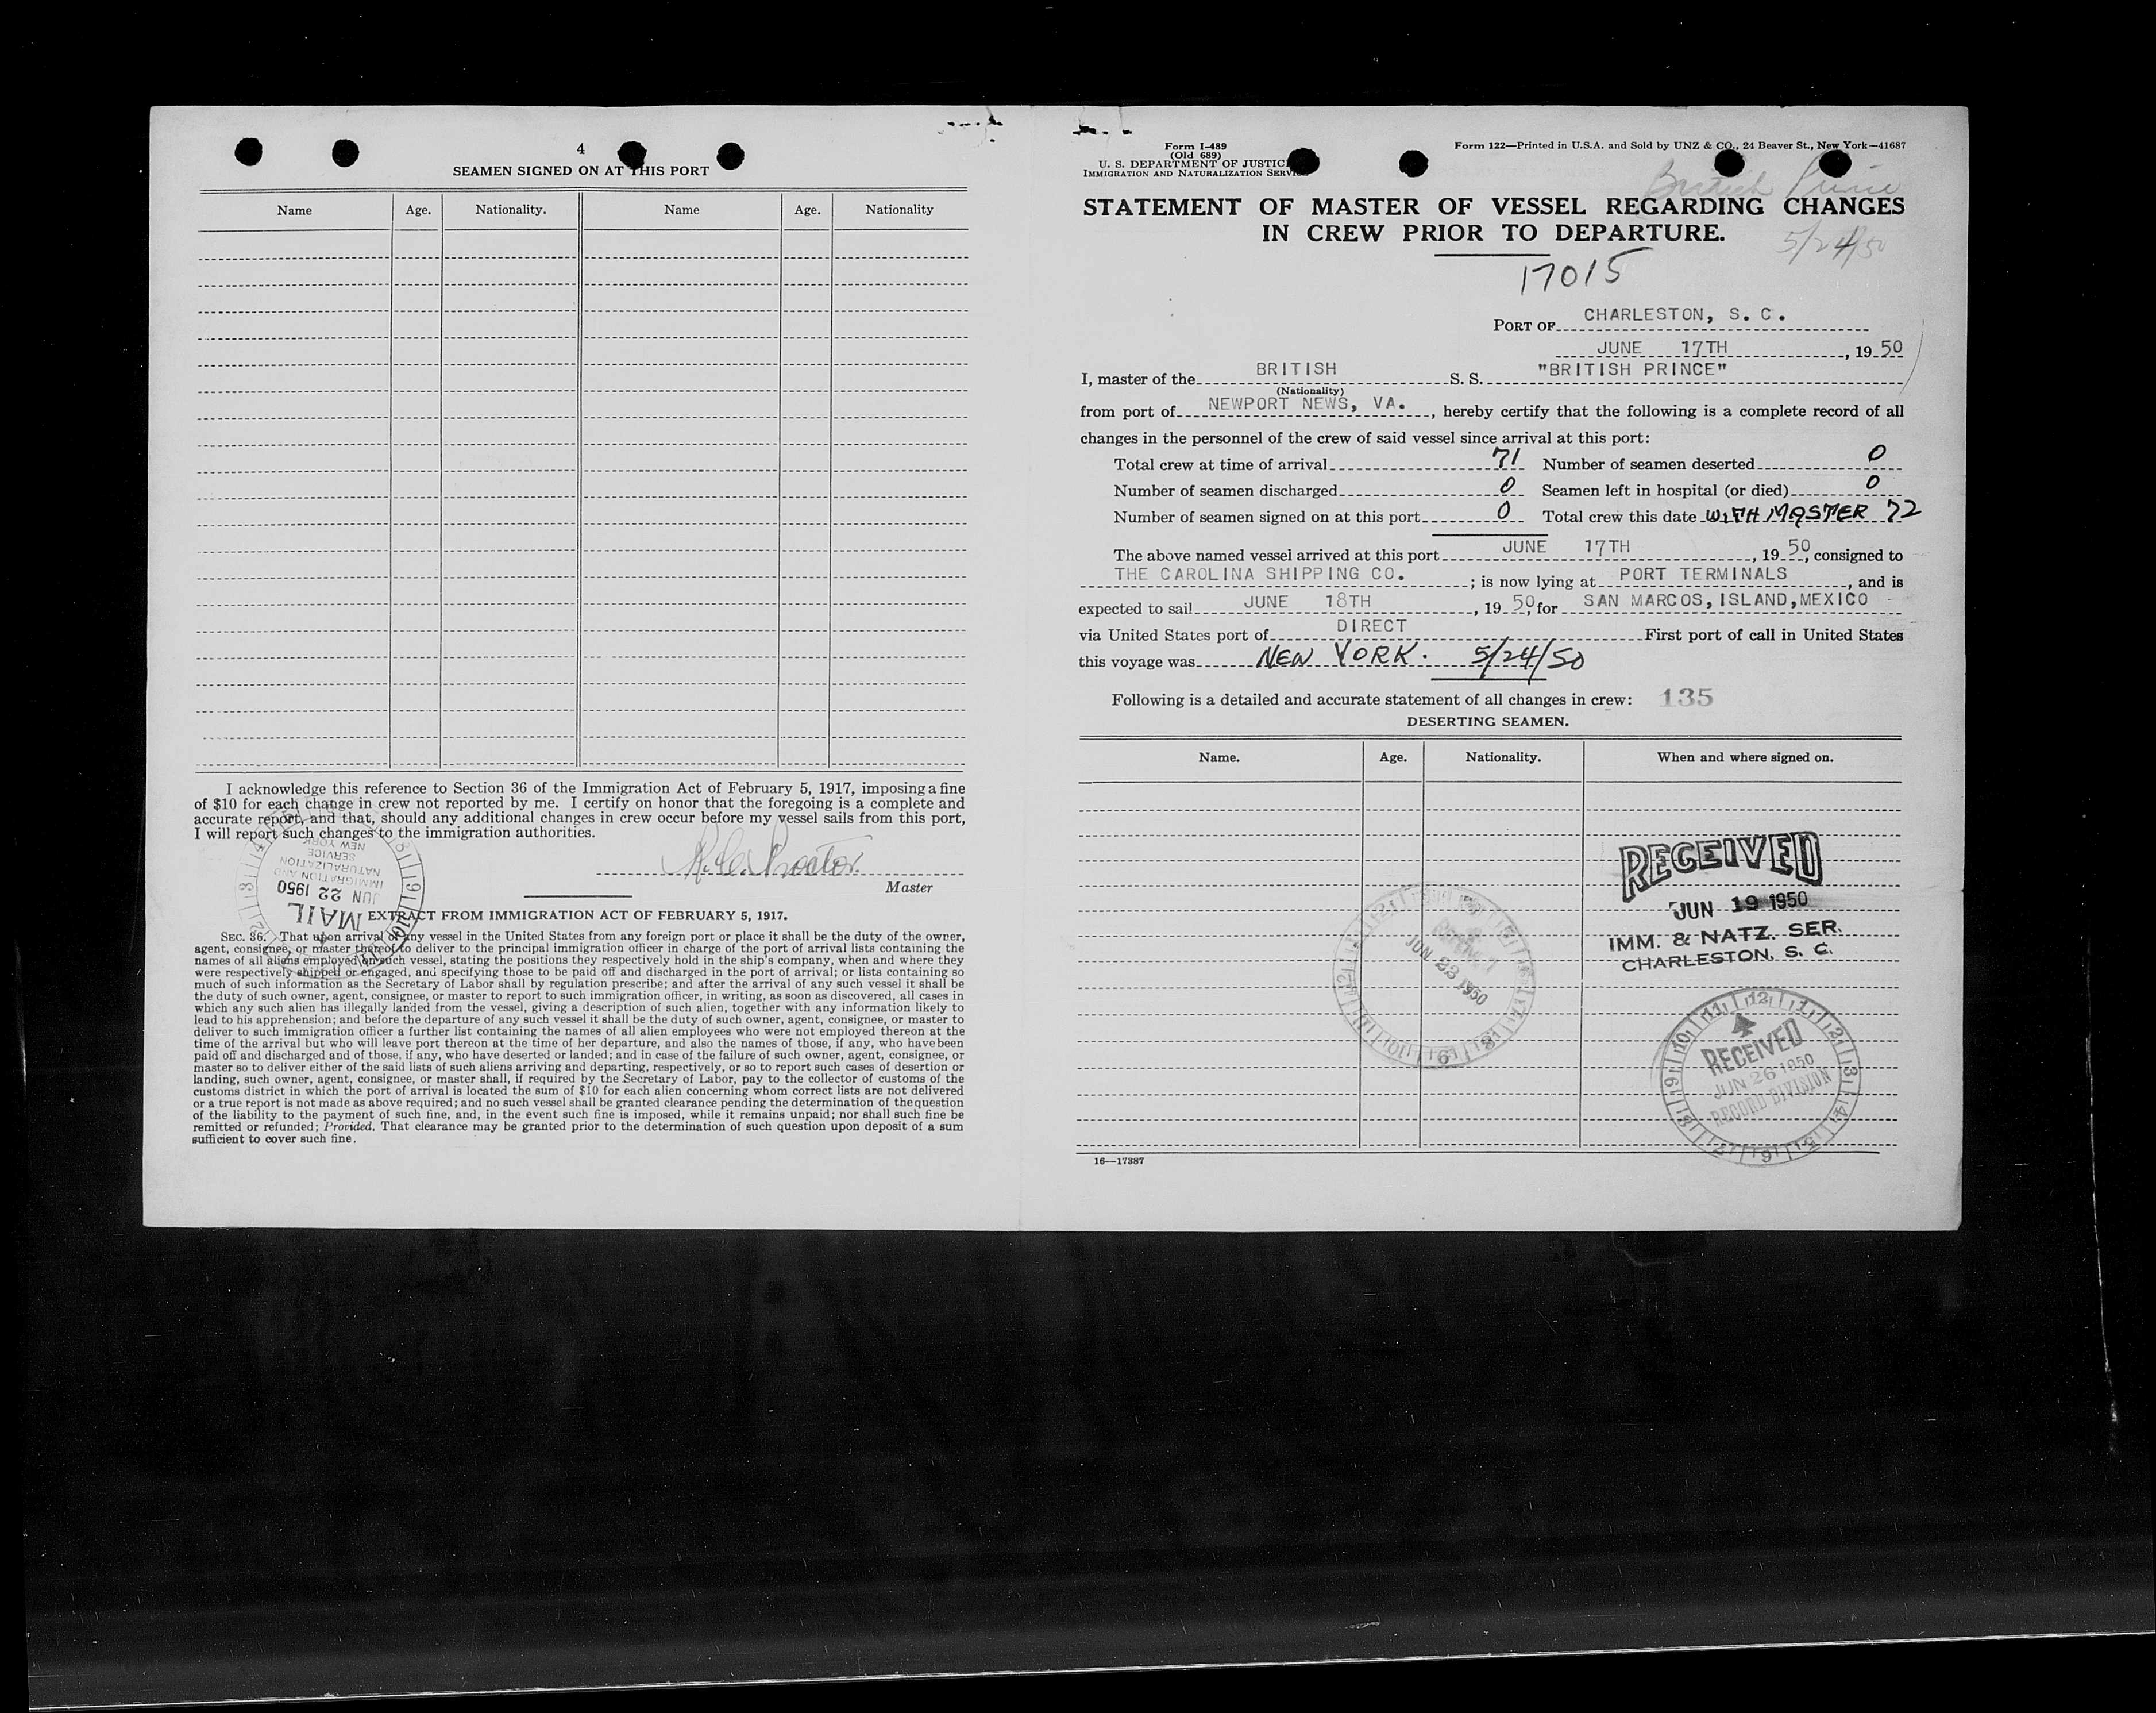 4
SEAMEN SIGNED ON AT THIS PORT
Name Age. Nationality. Name Age. Nationality
I acknowledge this reference to Section 36 of the Immigration Act of February 5, 1917, imposing a fine
of $10 for each change in crew not reported by me. I certify on honor that the foregoing is a complete and
accurate report, and that, should any additional changes in crew occur before my vessel sails from this port,
I will report such changes to the immigration authorities.
Proctor
Master
NEW YORK
SERVICE
NATURALIZATION
IMMIGRATION AND
JUN 22 1950
MAIL
EXTRACT FROM IMMIGRATION ACT OF FEBRUARY 5, 1917.
SEC. 36. That upon arrival of any vessel in the United States from any foreign port or place it shall be the duty of the owner,
agent, consignee, or master thereof to deliver to the principal immigration officer in charge of the port of arrival lists containing the
names of all aliens employed on such vessel, stating the positions they respectively hold in the ship's company, when and where they
were respectively shipped or engaged, and specifying those to be paid off and discharged in the port of arrival; or lists containing so
much of such information as the Secretary of Labor shall by regulation prescribe; and after the arrival of any such vessel it shall be
the duty of such owner, agent, consignee, or master to report to such immigration officer, in writing, as soon as discovered, all cases in
which any such alien has illegally landed from the vessel, giving a description of such alien, together with any information likely to
lead to his apprehension; and before the departure of any such vessel it shall be the duty of such owner, agent, consignee, or master to
deliver to such immigration officer a further list containing the names of all alien employees who were not employed thereon at the
time of the arrival but who will leave port thereon at the time of her departure, and also the names of those, if any, who have been
paid off and discharged and of those, if any, who have deserted or landed; and in case of the failure of such owner, agent, consignee, or
master so to deliver either of the said lists of such aliens arriving and departing, respectively, or so to report such cases of desertion or
landing, such owner, agent, consignee, or master shall, if required by the Secretary of Labor, pay to the collector of customs of the
customs district in which the port of arrival is located the sum of $10 for each alien concerning whom correct lists are not delivered
or a true report is not made as above required; and no such vessel shall be granted clearance pending the determination of the question
of the liability to the payment of such fine, and, in the event such fine is imposed, while it remains unpaid; nor shall such fine be
remitted or refunded; Provided, That clearance may be granted prior to the determination of such question upon deposit of a sum
sufficient to cover such fine.
Form I-489
(Old 689)
U. S. DEPARTMENT OF JUSTICE
IMMIGRATION AND NATURALIZATION SERVICE
Form 122—Printed in U.S.A. and Sold by UNZ & CO., 24 Beaver St., New York—41687
British Prince
STATEMENT OF MASTER OF VESSEL REGARDING CHANGES
IN CREW PRIOR TO DEPARTURE.
5/24/50
17015
PORT OF CHARLESTON, S. C.
JUNE 17TH, 19 50
I, master of the BRITISH S. S. "BRITISH PRINCE"
(Nationality)
from port of NEWPORT NEWS, VA., hereby certify that the following is a complete record of all
changes in the personnel of the crew of said vessel since arrival at this port:
Total crew at time of arrival 71 Number of seamen deserted 0
Number of seamen discharged 0 Seamen left in hospital (or died) 0
Number of seamen signed on at this port 0 Total crew this date WITH MASTER 72
The above named vessel arrived at this port JUNE 17TH, 19 50, consigned to
THE CAROLINA SHIPPING CO.; is now lying at PORT TERMINALS, and is
expected to sail JUNE 18TH, 19 50, for SAN MARCOS, ISLAND, MEXICO
via United States port of DIRECT First port of call in United States
this voyage was NEW YORK. 5/24/50
Following is a detailed and accurate statement of all changes in crew: 135
DESERTING SEAMEN.
Name. Age. Nationality. When and where signed on.
RECEIVED
JUN 19 1950
IMM. & NATZ. SER.
CHARLESTON, S. C.
JUN 23 1950
RECEIVED
JUN 26 1950
RECORD DIVISION
16—17387